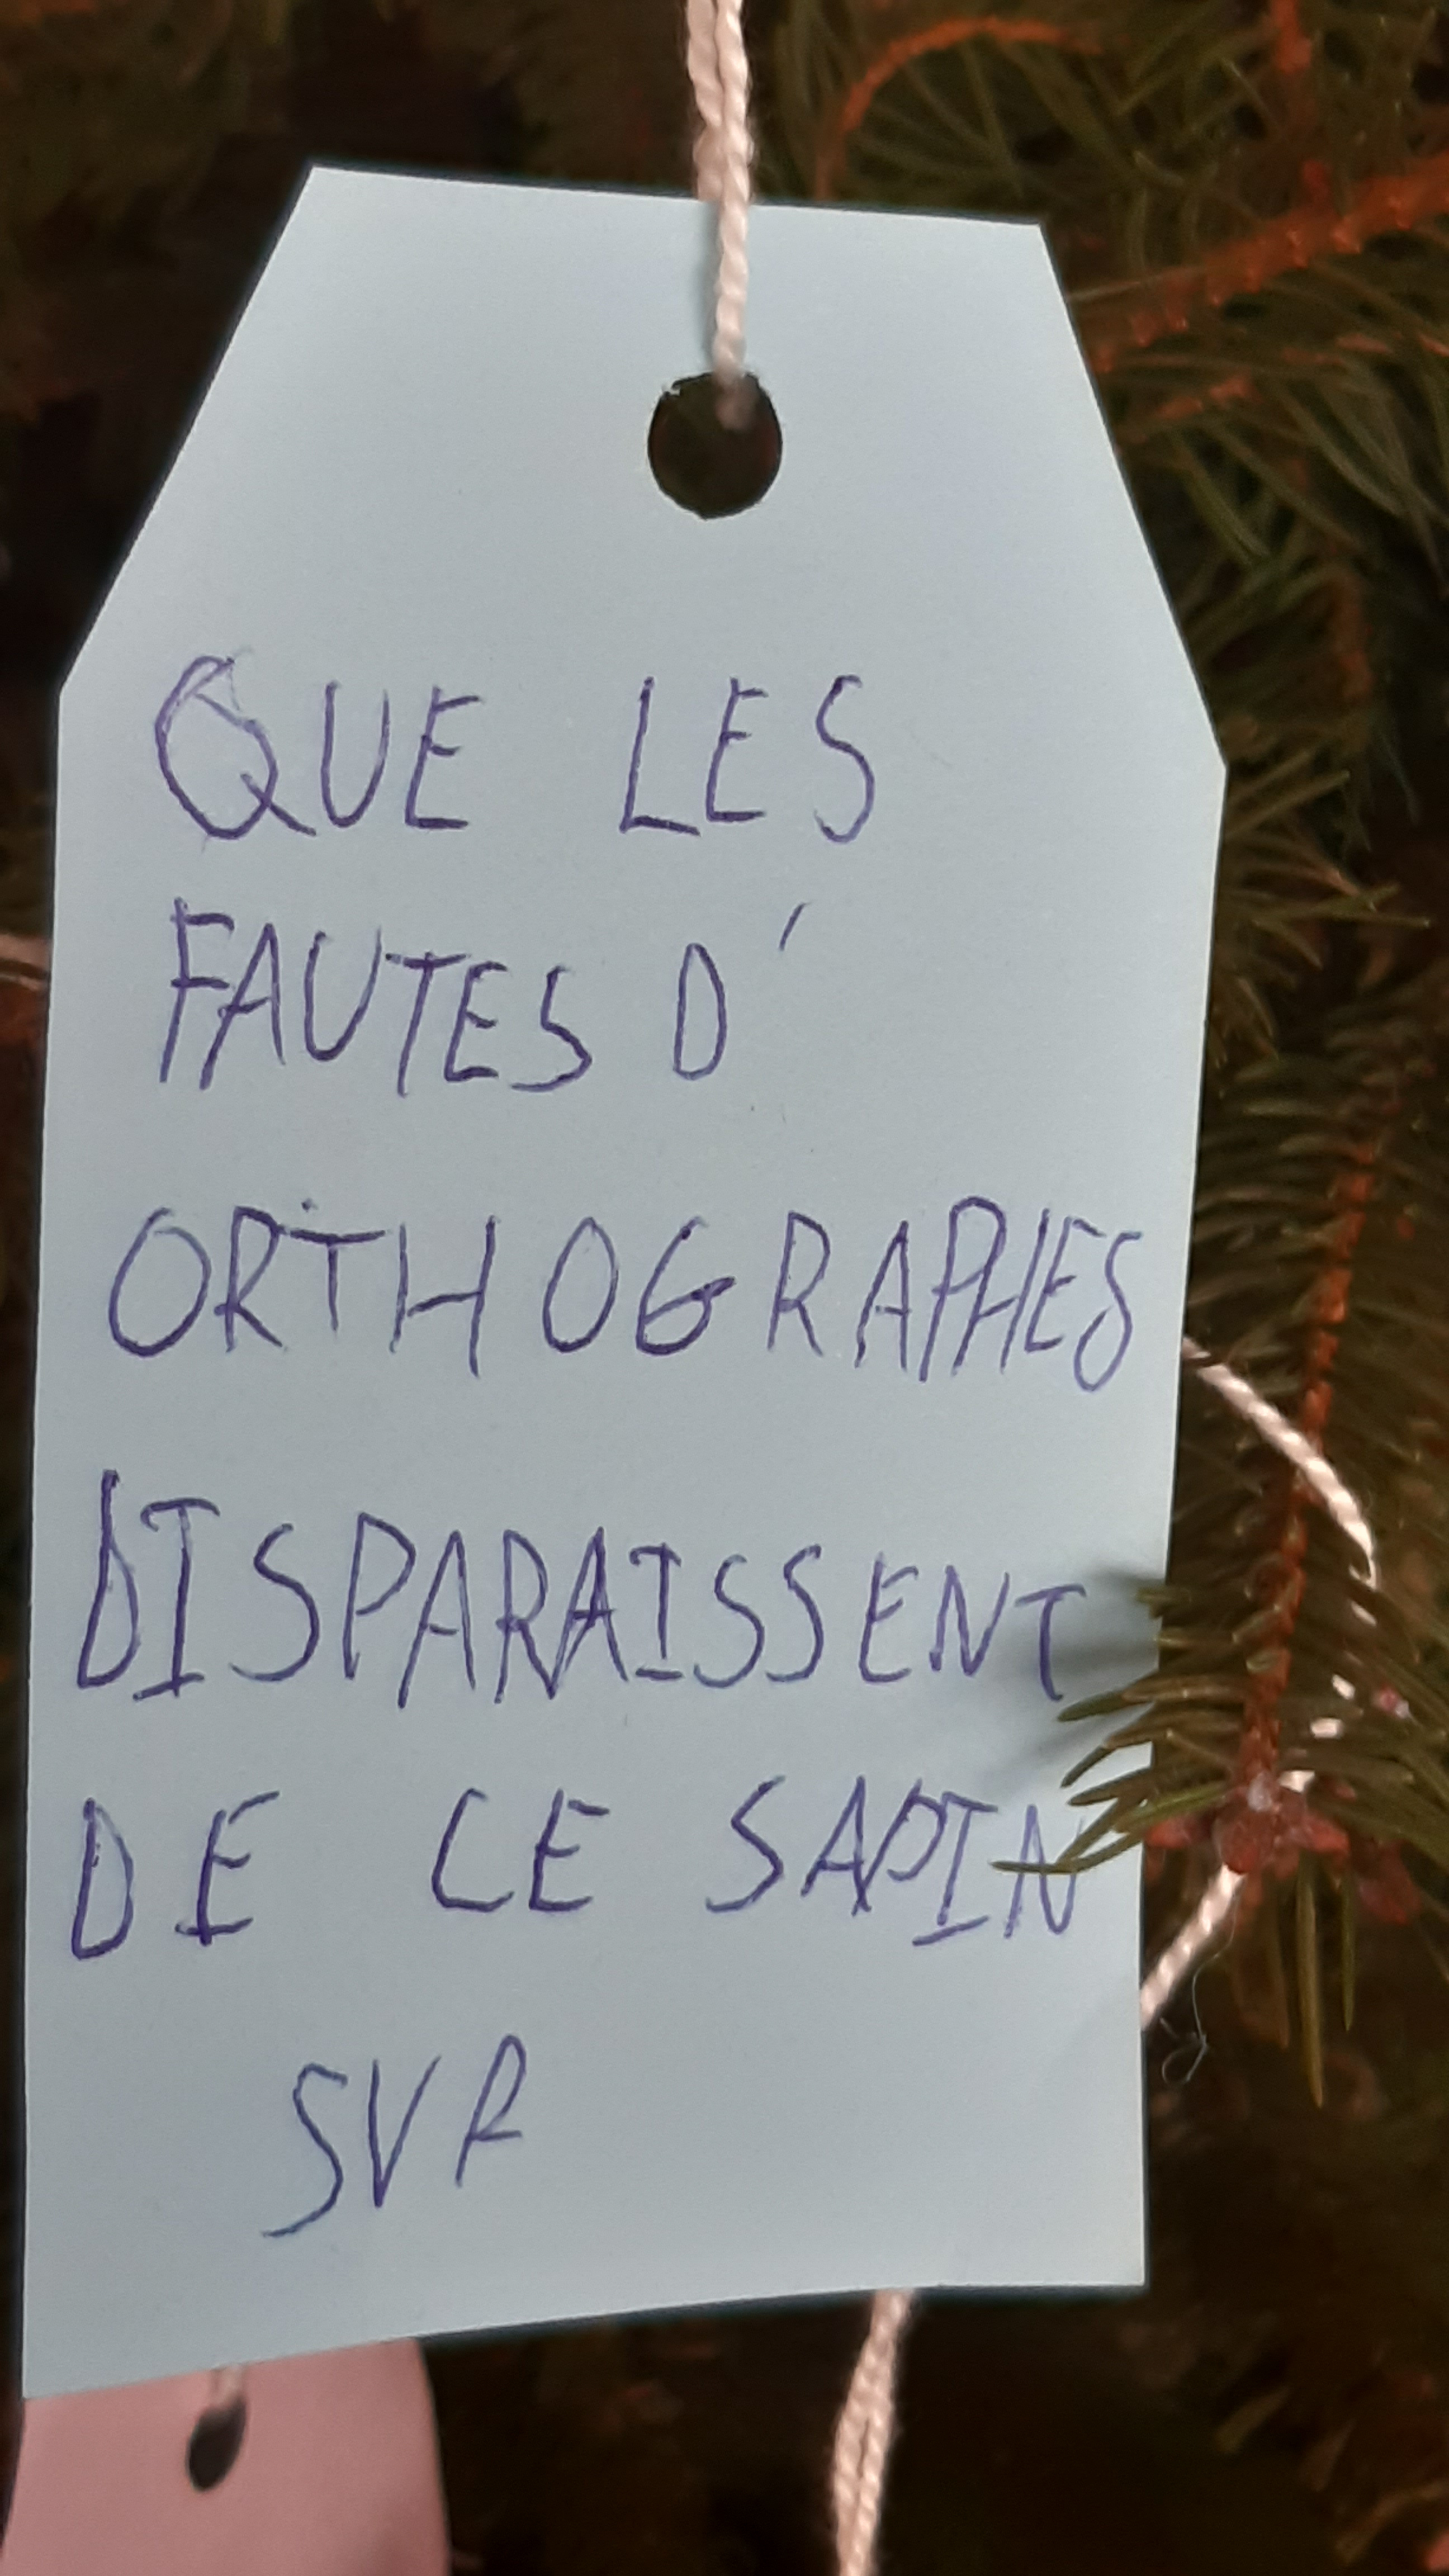 QUE LES
FAUTES D'
ORTHOGRAPHES
DISPARAISSENT
DE CE SAPIN
SVP